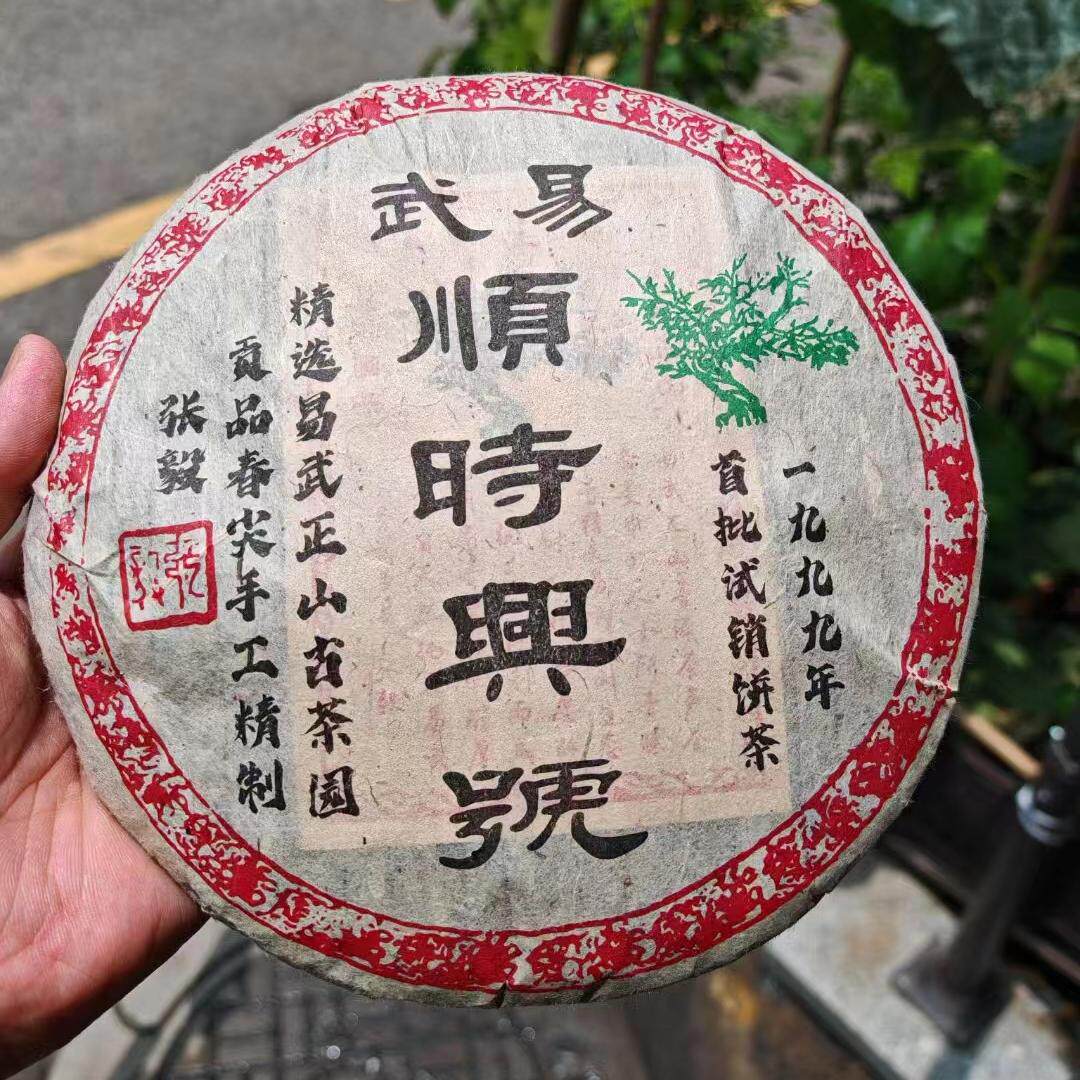 易武
順時興號
一九九九年
首批试销饼茶
精选易武正山古茶园
贡品春尖手工精制
张毅